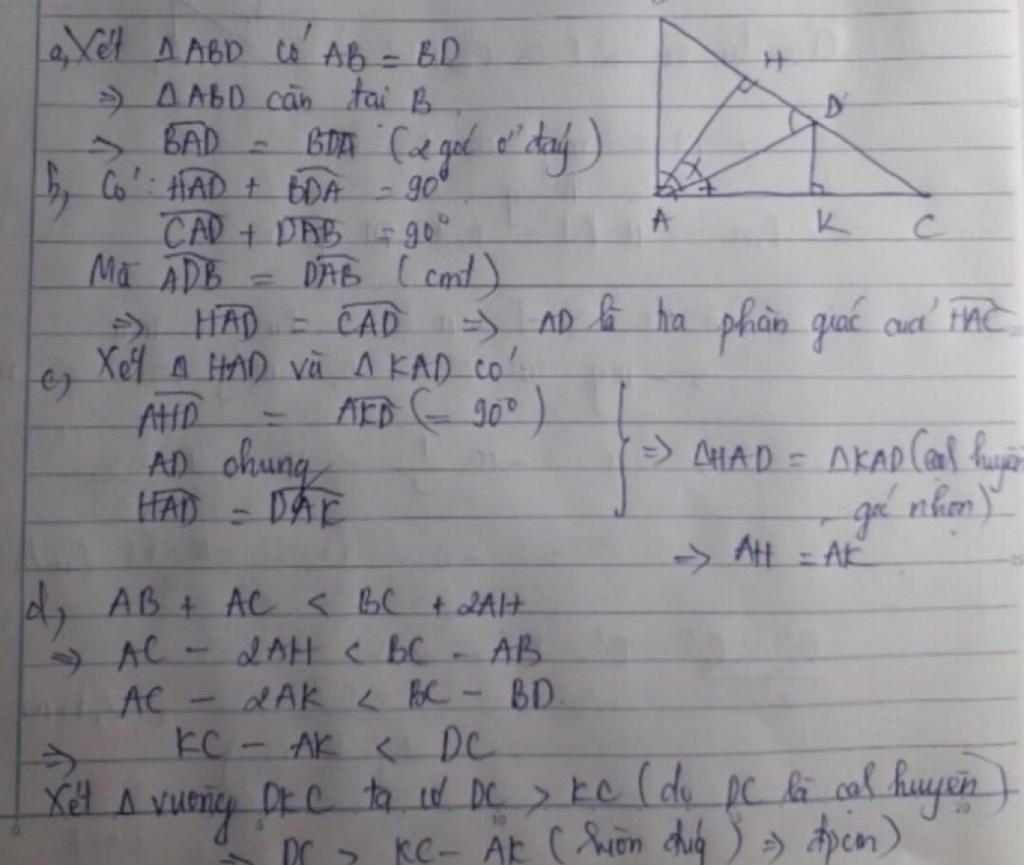 a, Xét ΔABD có AB = BD
⇒ ΔABD cân tại B
⇒ BAD = BDA (2 góc ở đáy)
b, Có: HAD + BDA = 90°
CAD + DAB = 90°
Mà ADB = DAB (cmt)
⇒ HAD = CAD ⇒ AD là tia phân giác của HAC
c, Xét Δ HAD và Δ KAD có
AHD = AKD (= 90°)
AD chung
HAD = DAK
⇒ ΔHAD = ΔKAD (cạnh huyền
góc nhọn)
⇒ AH = AK
d, AB + AC < BC + 2AH
⇒ AC - 2AH < BC - AB
AC - 2AK < BC - BD
⇒ KC - AK < DC
Xét Δ vuông DKC ta có DC > KC (do DC là cạnh huyền)
⇒ DC > KC - AK (luôn đúng) ⇒ đpcm)
H
D
A
K
C